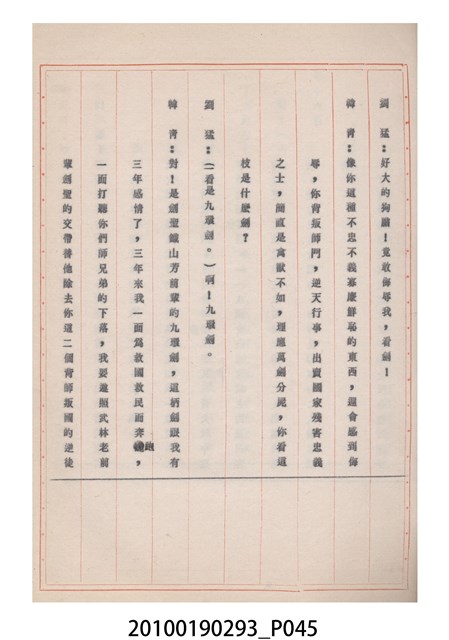 劉猛：好大的狗膽！竟敢侮辱我，看劍！
韓青：像你這種不忠不義寡廉鮮恥的東西，還會感到侮
辱，你背叛師門，逆天行事，出賣國家殘害忠義
之士，簡直是禽獸不如，理應萬劍分屍，你看這
枝是什麼劍？
劉猛：（一看是九環劍。）啊！九環劍。
韓青：對！是劍聖鐵山芳前輩的九環劍，這柄劍跟我有
三年感情了，三年來我一面為救國救民而奔跑，
一面打聽你們師兄弟的下落，我要遵照武林老前
輩劍聖的交帶替他除去你這二個背師叛國的逆徒
20100190293_P045